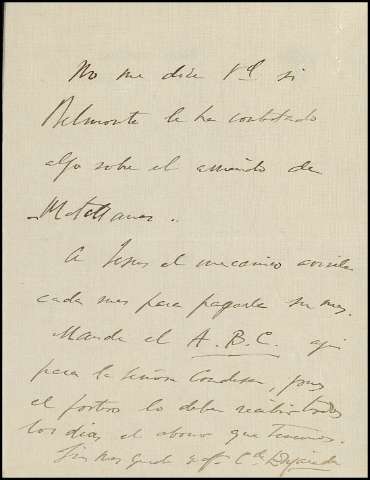 No me dice Vd si
Belmonte le ha contestado
algo sobre el arriendo de
Matallanas.
A Jesus el mecanico
cada mes para pagarle su mes.
Mande el A.B.C. aqui
para la Señora Condesa, pues
el portero lo debe recibir todos
los dias el abono que tenemos.
Sin mas queda C. de